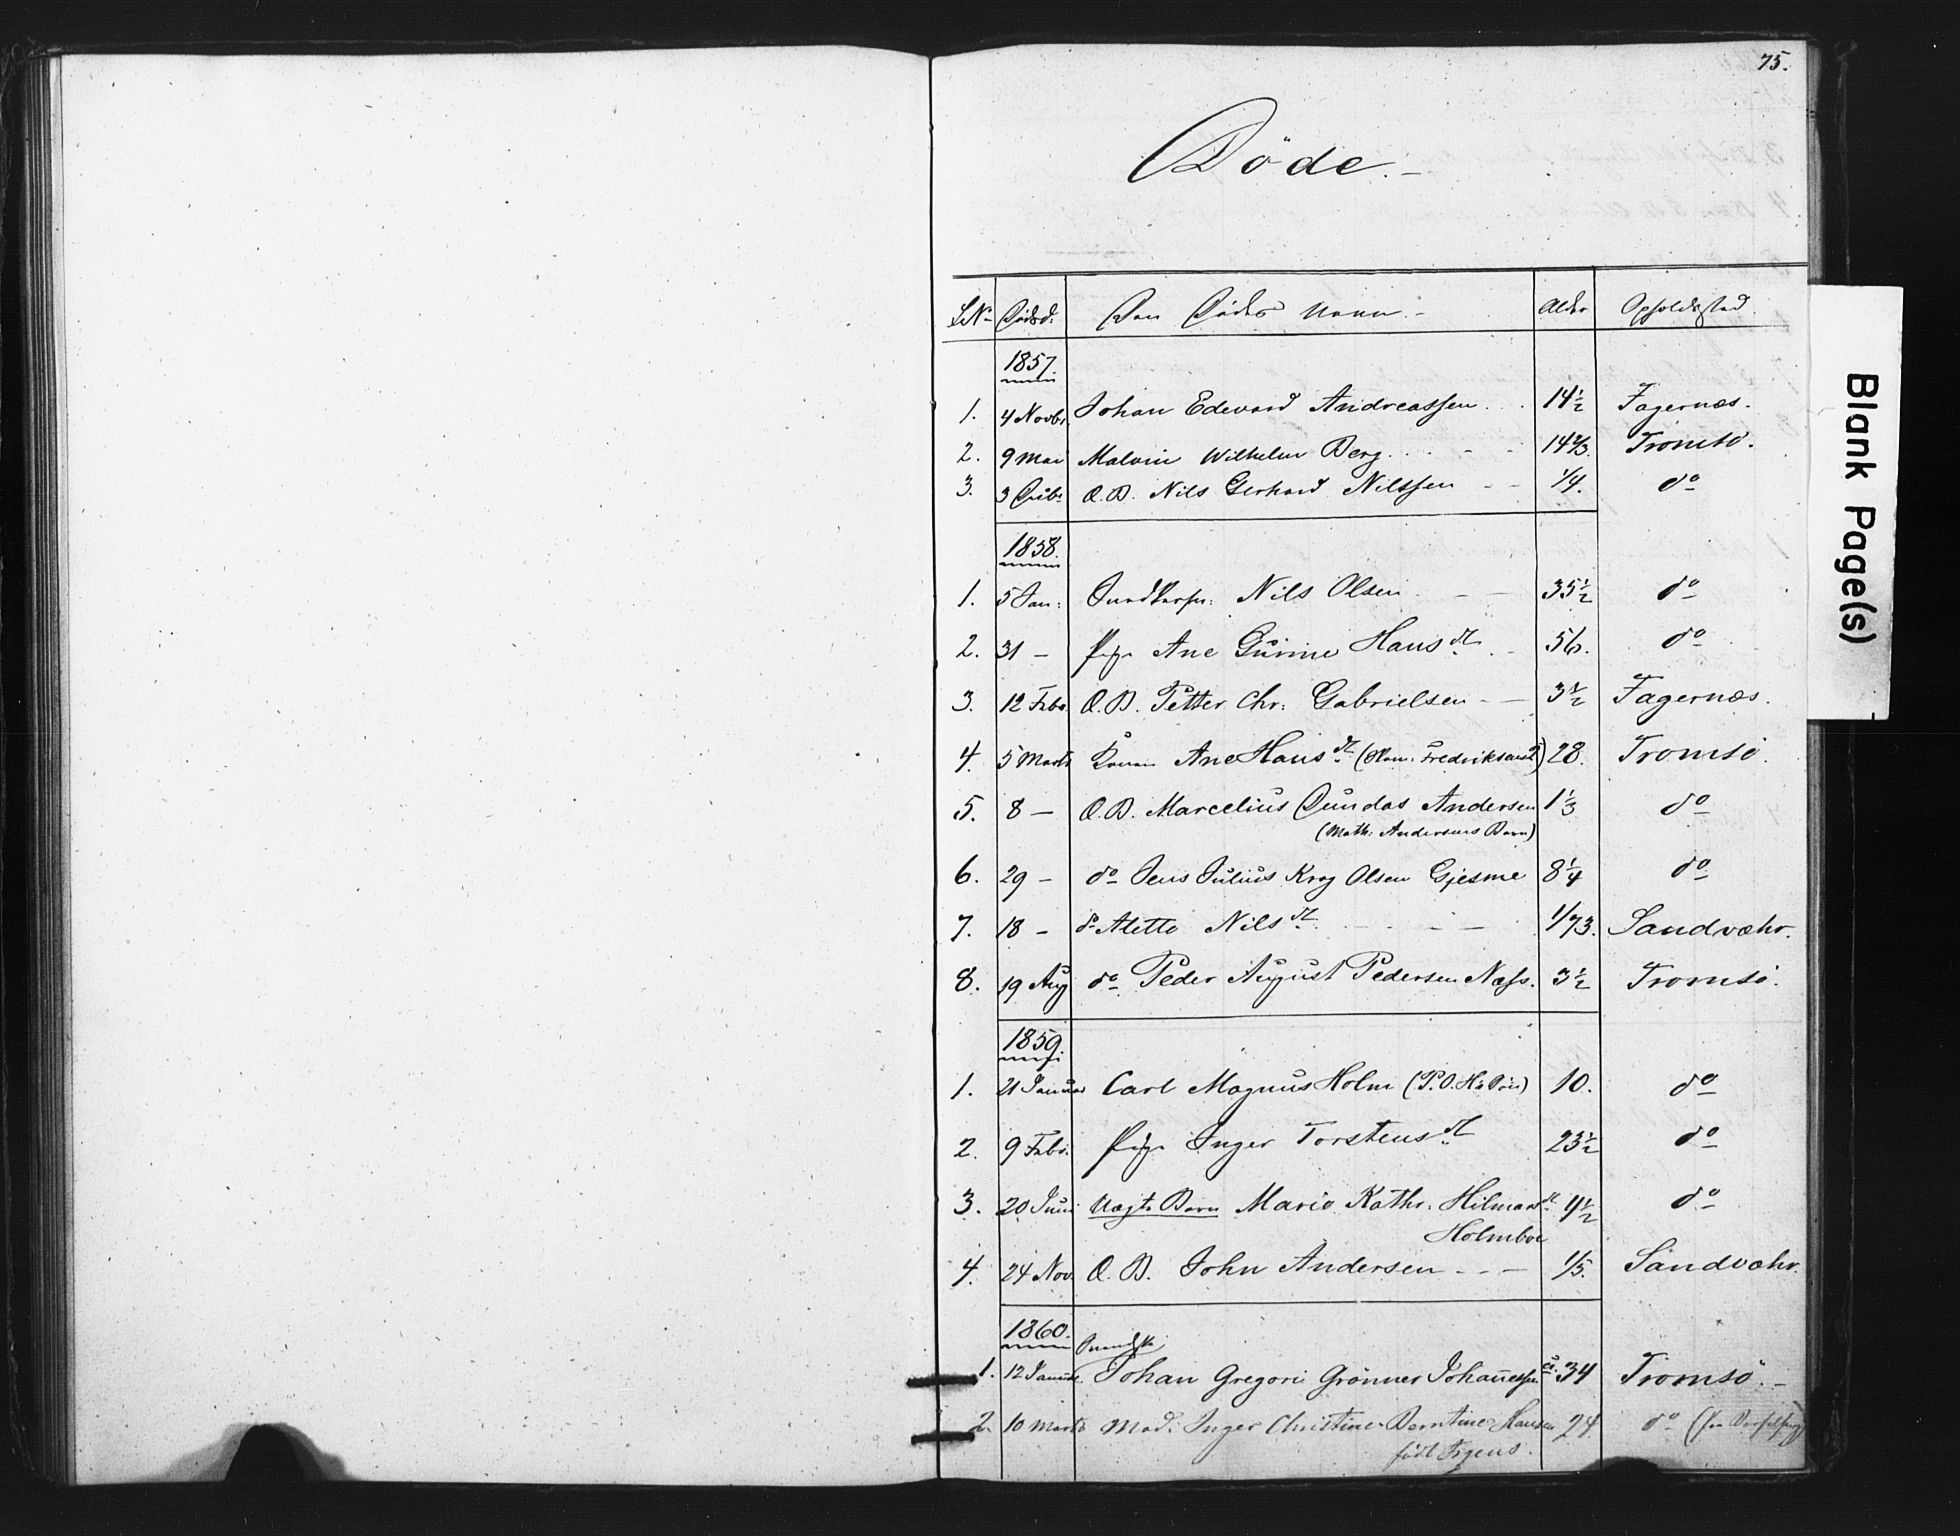 75.
Døde.
L.No Dødsd: Den Dødes Navn. Alder Opholdsstad.
1857.
1. 4 Novbr. Johan Edevard Andreassen 14½ Fagernæs.
2. 9 Mai Malvin Wilhelm Berg 14⅔. Tromsö.
3. 3 Debr Æ.B. Nils Gerhard Nilssen 1/4. do
1858.
1. 5 Jan: Nils Olsen 35½ do
2. 31 — Pige Ane Gurine Hansdt. 56. do
3. 12 Febr. Æ.B. Petter Chr: Gabrielsen 3½ Fagernæs.
4. 5 Marts Konen Ane Hansdt. 28. Tromsö.
5. 8 — Æ.B. Marcelius Dundas Andersen 1⅓ do
(Math: Andersens Barn)
6. 29 — do Jens Julius Krog Olsen Gjesme 8¼ do
7. 18 — do Alette Nilsdt. 1/73. Sandvæhr.
8. 19 Aug do Peder August Pedersen Næss. 3½ Tromsö.
1859.
1. 21 Januar Carl Magnus Holm (P.O.H's Søn) 10. do
2. 9 Febr. Pige Inger Torstensdt 23½ do
3. 20 Juni Uægte Barn Marie Kathr. Hilmarsdt. ½ do
Holmboe
4. 24 Nov. Æ.B. John Andersen 1/5. Sandvæhr.
1860.
1. 12 Januar Johan Gregori Grönner Johannessen 34 Tromsö.
2. 10 Marts Mad. Inger Christine Berntine Hansen 24 do
født Irgens.
Blank Page(s)